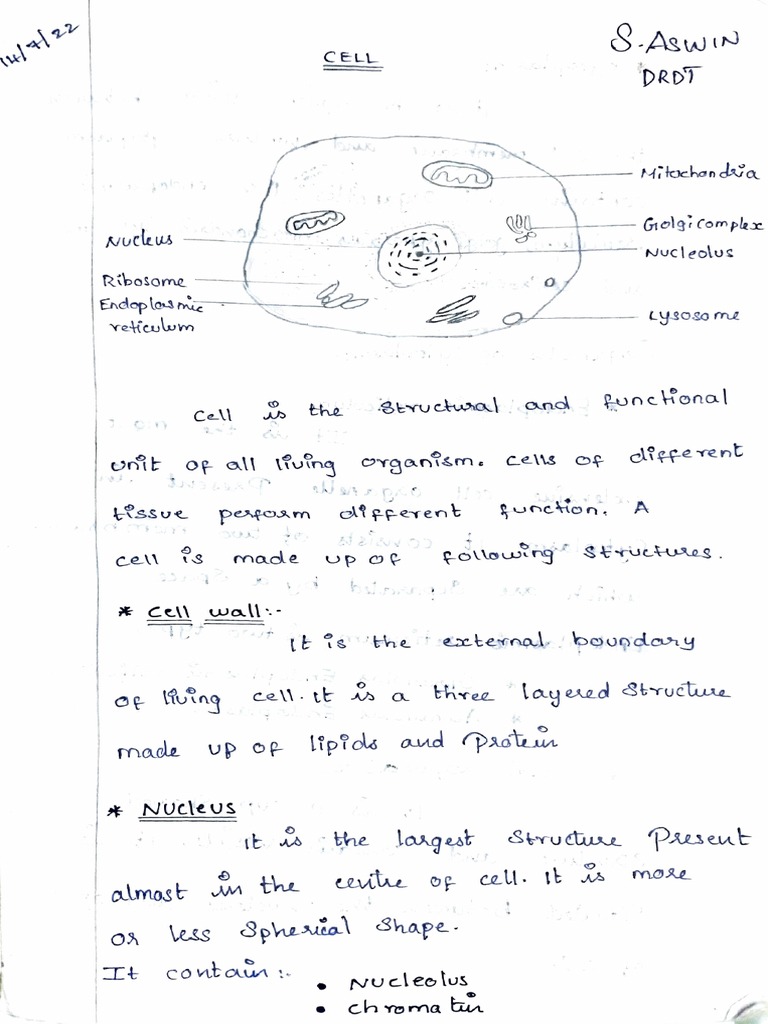 14/7/22
S. ASWIN
DRDT
CELL
Mitochondria
Golgi complex
Nucleus
Nucleolus
Ribosome
Endoplasmic
reticulum
Lysosome
Cell is the structural and functional
unit of all living organism. Cells of different
tissue perform different function. A
cell is made up of following structures.
* Cell wall:-
It is the external boundary
of living cell. It is a three layered structure
made up of lipids and protein
* Nucleus
It is the largest structure present
almost in the centre of cell. It is more
or less spherical shape.
It contain:-
• Nucleolus
• chromatin